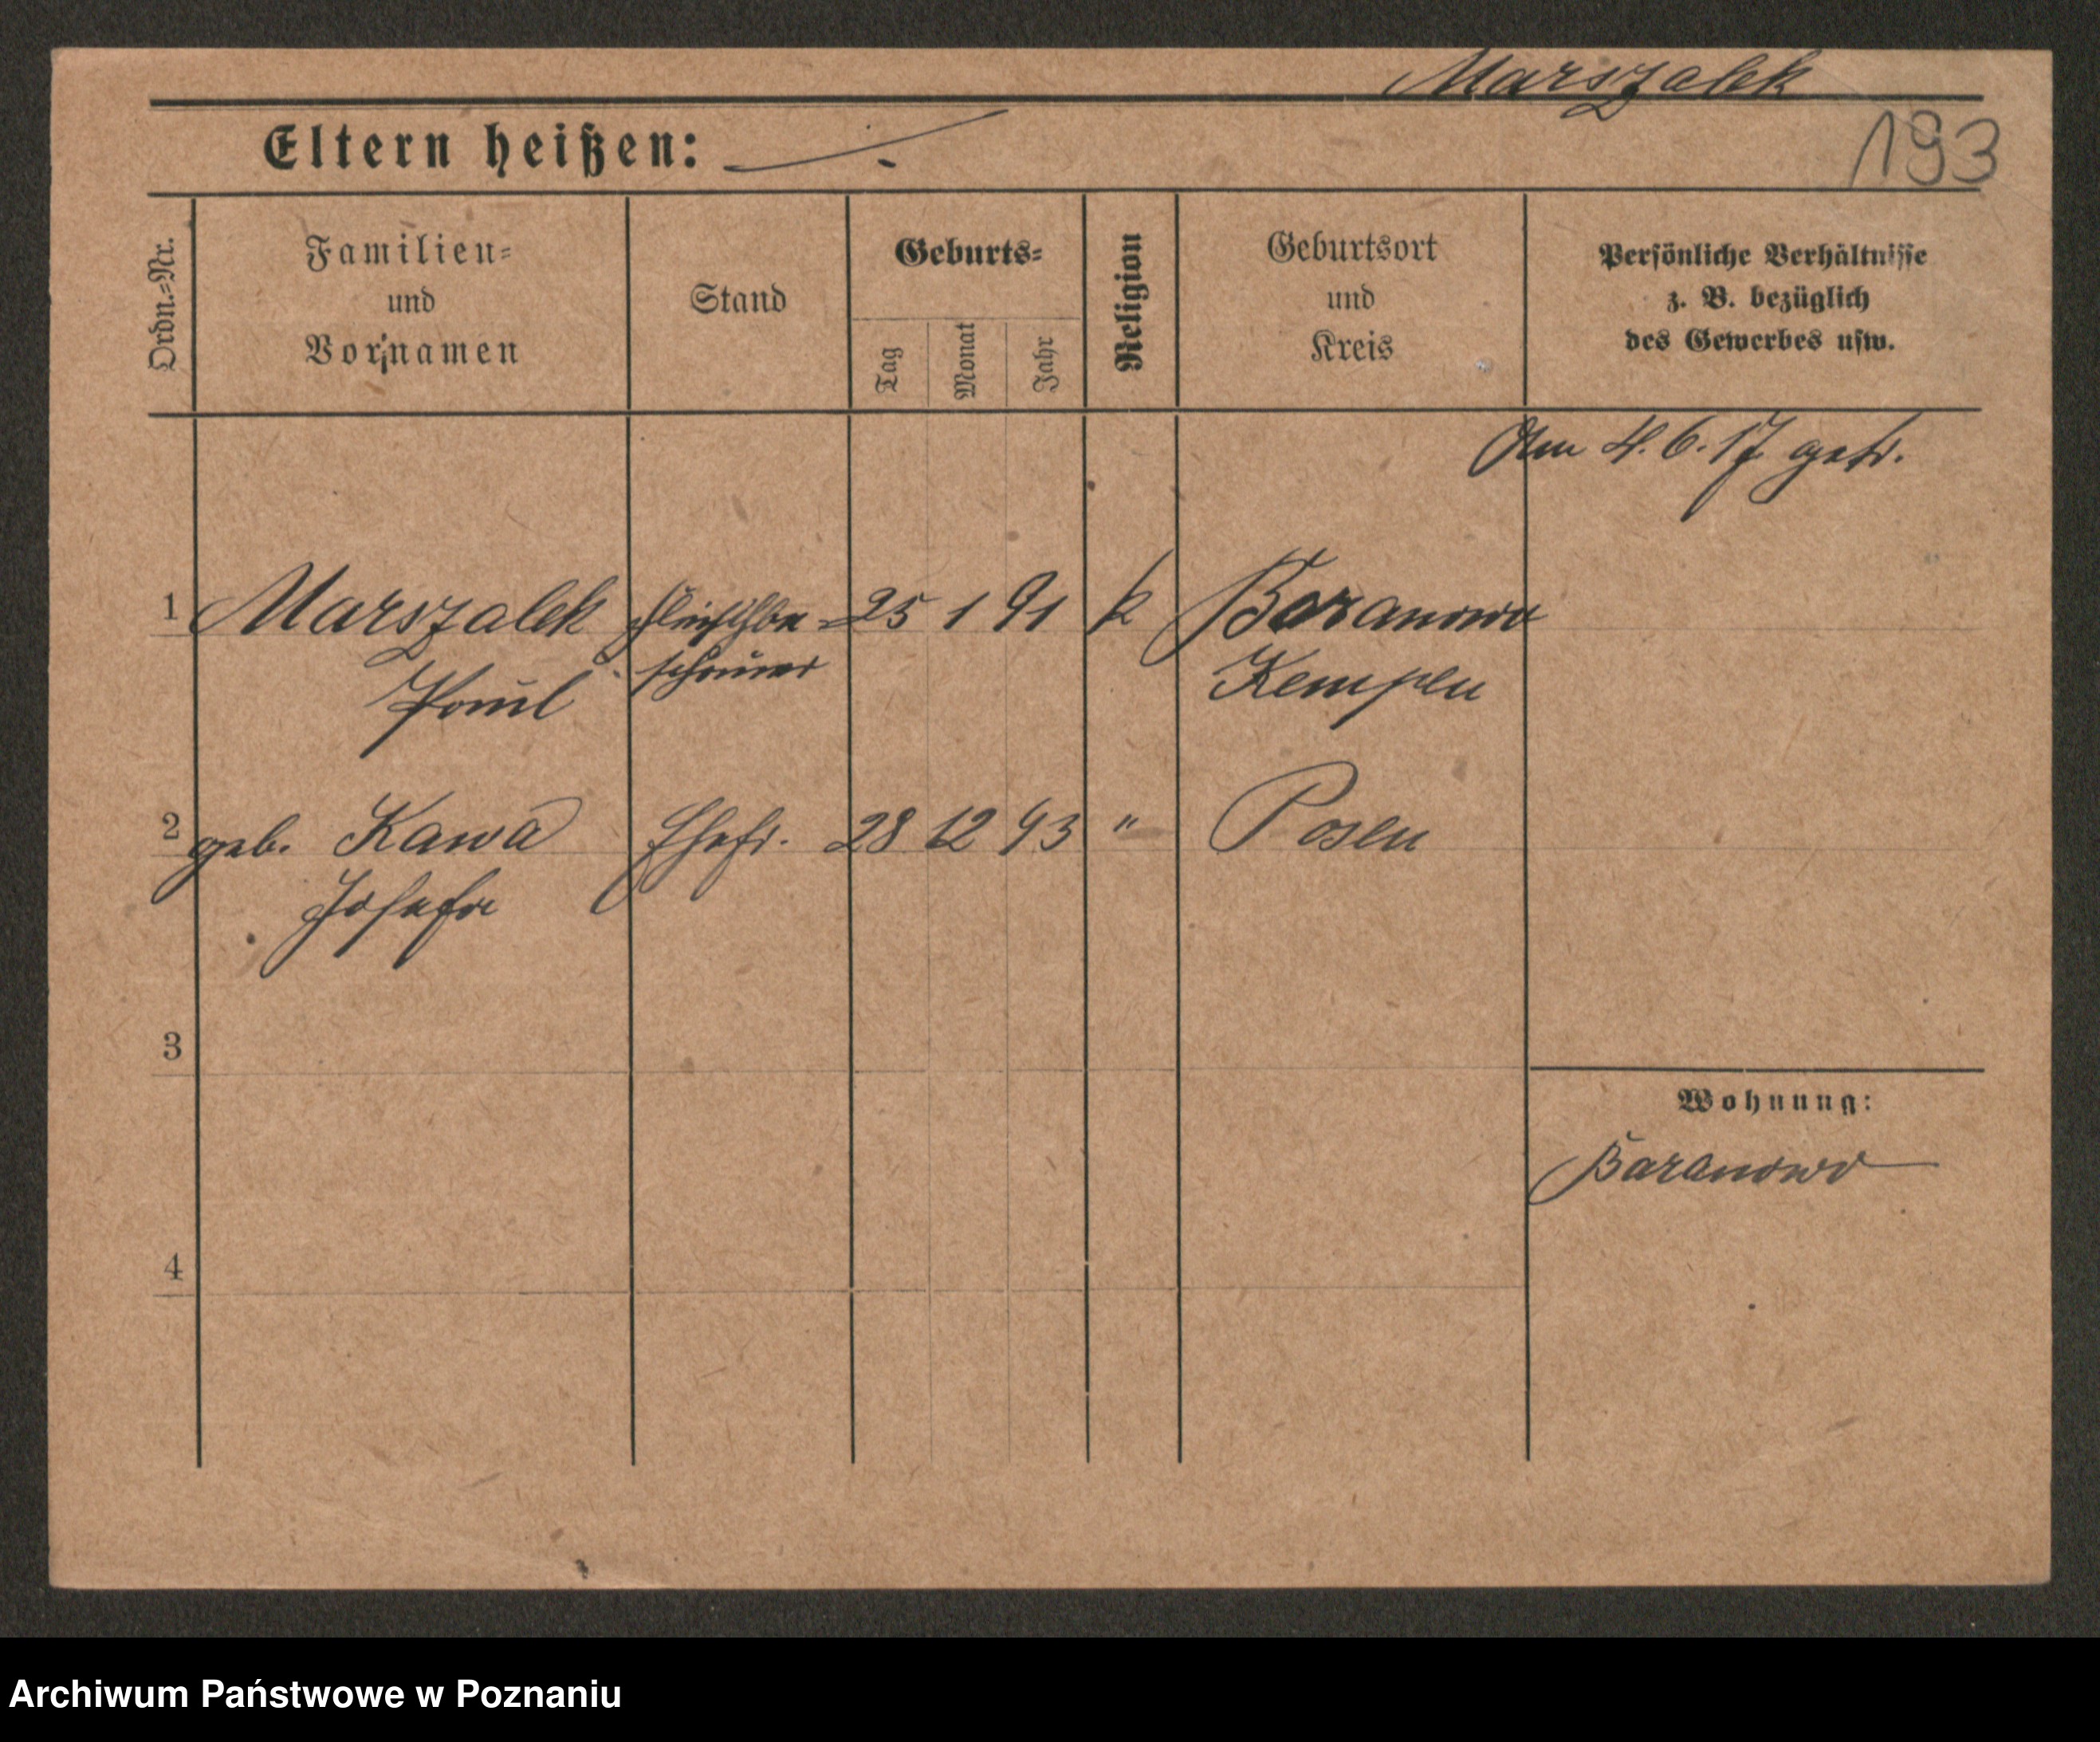 Marszalek
193
Eltern heißen:
Ordn.=Nr.
Familien=
und
Vornamen
Stand
Geburts=
Tag
Monat
Jahr
Religion
Geburtsort
und
Kreis
Persönliche Verhältnisse
z. B. bezüglich
des Gewerbes usw.
Am 4.6.17 getr.
1 Marszalek Fleischbe= 25 1 91 k Baranowo
Paul schauer Kempen
2 geb. Kawa Ehefr. 28 12 93 " Posen
Josefa
3
Wohnung:
Baranowo
4
Archiwum Państwowe w Poznaniu